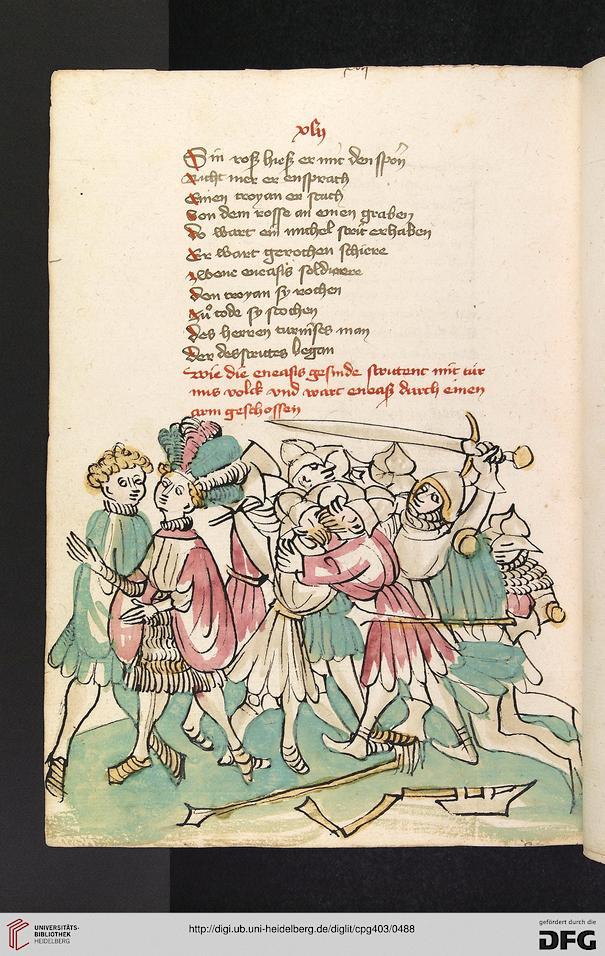 xlij
Sin roß hieß er mit den sporn
Nicht mer er ensprach
Einen troyan er stach
Von dem rosse an einen graben
Do wart ein michel strit erhaben
Er wart gerochen schiere
zwene eneasis soldiere
den troyan sy rochen
Zuͦ tode sy stochen
des herren turnises man
Der des strites began
Wie die eneasis gesinde stritent mit tur
nus volck vnd wart eneaß durch einen
arm geschossen
UNIVERSITÄTS-
BIBLIOTHEK
HEIDELBERG
http://digi.ub.uni-heidelberg.de/diglit/cpg403/0488
gefördert durch die
DFG